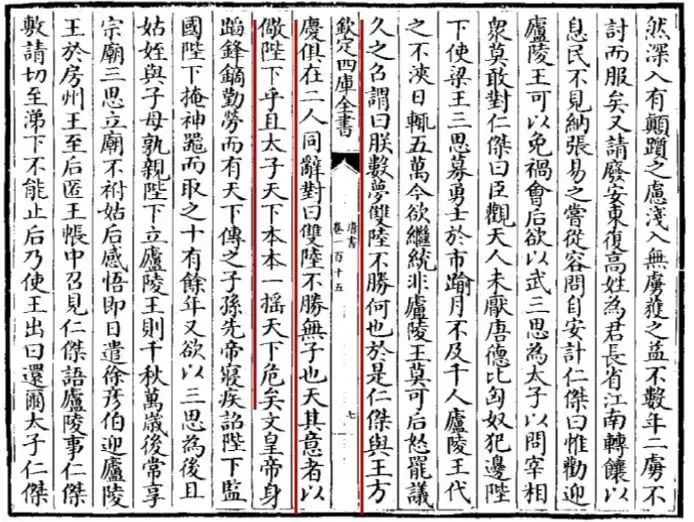 然深入有顛躓之慮淺入無虜獲之益不數年二虜不
討而服矣又請廢安東復高姓為君長省江南轉饟以
息民不見納張易之嘗從容問自安計仁傑曰惟勸迎
廬陵王可以免禍會后欲以武三思為太子以問宰相
衆莫敢對仁傑曰臣觀天人未厭唐德比匈奴犯邊陛
下使梁王三思募勇士於市踰月不及千人廬陵王代
之不浹日輒五萬今欲繼統非廬陵王莫可后怒罷議
久之召謂曰朕數夢雙陸不勝何也於是仁傑與王方
欽定四庫全書
唐書
卷一百十五
七
慶俱在二人同辭對曰雙陸不勝無子也天其意者以
儆陛下乎且太子天下本本一搖天下危矣文皇帝身
蹈鋒鏑勤勞而有天下傳之子孫先帝寢疾詔陛下監
國陛下掩神器而取之十有餘年又欲以三思為後且
姑姪與子母孰親陛下立廬陵王則千秋萬歲後常享
宗廟三思立廟不祔姑后感悟即日遣徐彥伯迎廬陵
王於房州王至后匿王帳中召見仁傑語廬陵事仁傑
敷請切至涕下不能止后乃使王出曰還爾太子仁傑